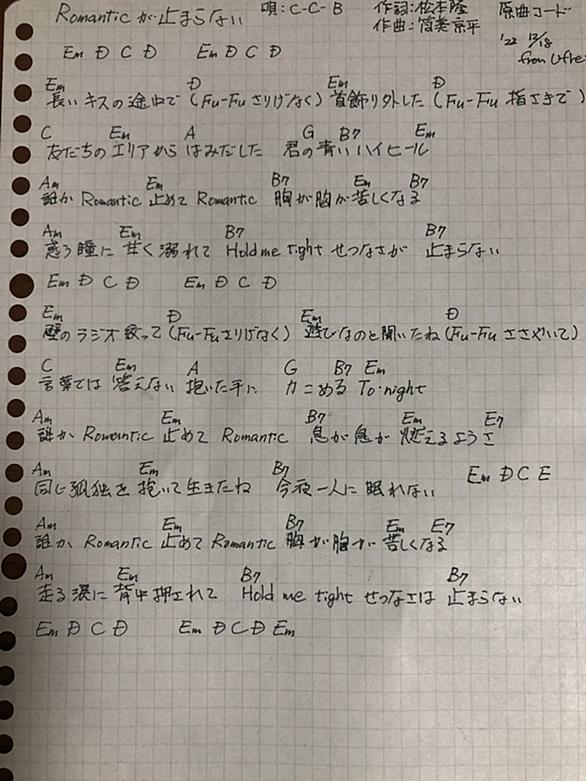 Romanticが止まらない 唄:C-C-B 作詞:松本隆 原曲コード
作曲:筒美京平 '22 12/18
from U-fre
Em D C D Em D C D
Em D Em D
長いキスの途中で (Fu-Fu さりげなく) 首飾り外した (Fu-Fu 指さきで)
C Em A G B7 Em
友だちのエリアから はみだした 君の青いハイヒール
Am Em B7 Em B7
誰か Romantic 止めて Romantic 胸が胸が苦しくなる
Am Em B7 B7
惑う瞳に 甘く溺れて Hold me tight せつなさが 止まらない
Em D C D Em D C D
Em D Em D
壁のラジオ絞って (Fu-Fu さりげなく) 遊びなのと聞いたね (Fu-Fu ささやいて)
C Em A G B7 Em
言葉では 答えない 抱いた手に 力こめる To-night
Am Em B7 Em E7
誰か Romantic 止めて Romantic 息が息が 燃えるようさ
Am Em B7 Em D C E
同じ孤独を 抱いて生きたね 今夜一人に 眠れない
Am Em B7 Em E7
誰か Romantic 止めて Romantic 胸が胸が 苦しくなる
Am Em B7 B7
走る涙に 背中押されて Hold me tight せつなさは 止まらない
Em D C D Em D C D Em